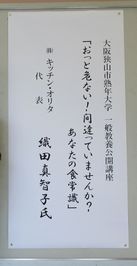 大阪狭山市熟年大学 一般教養公開講座
「おっと危ない!間違っていませんか?
あなたの食常識」
㈱キッチン・オリタ
代表
織田真智子氏